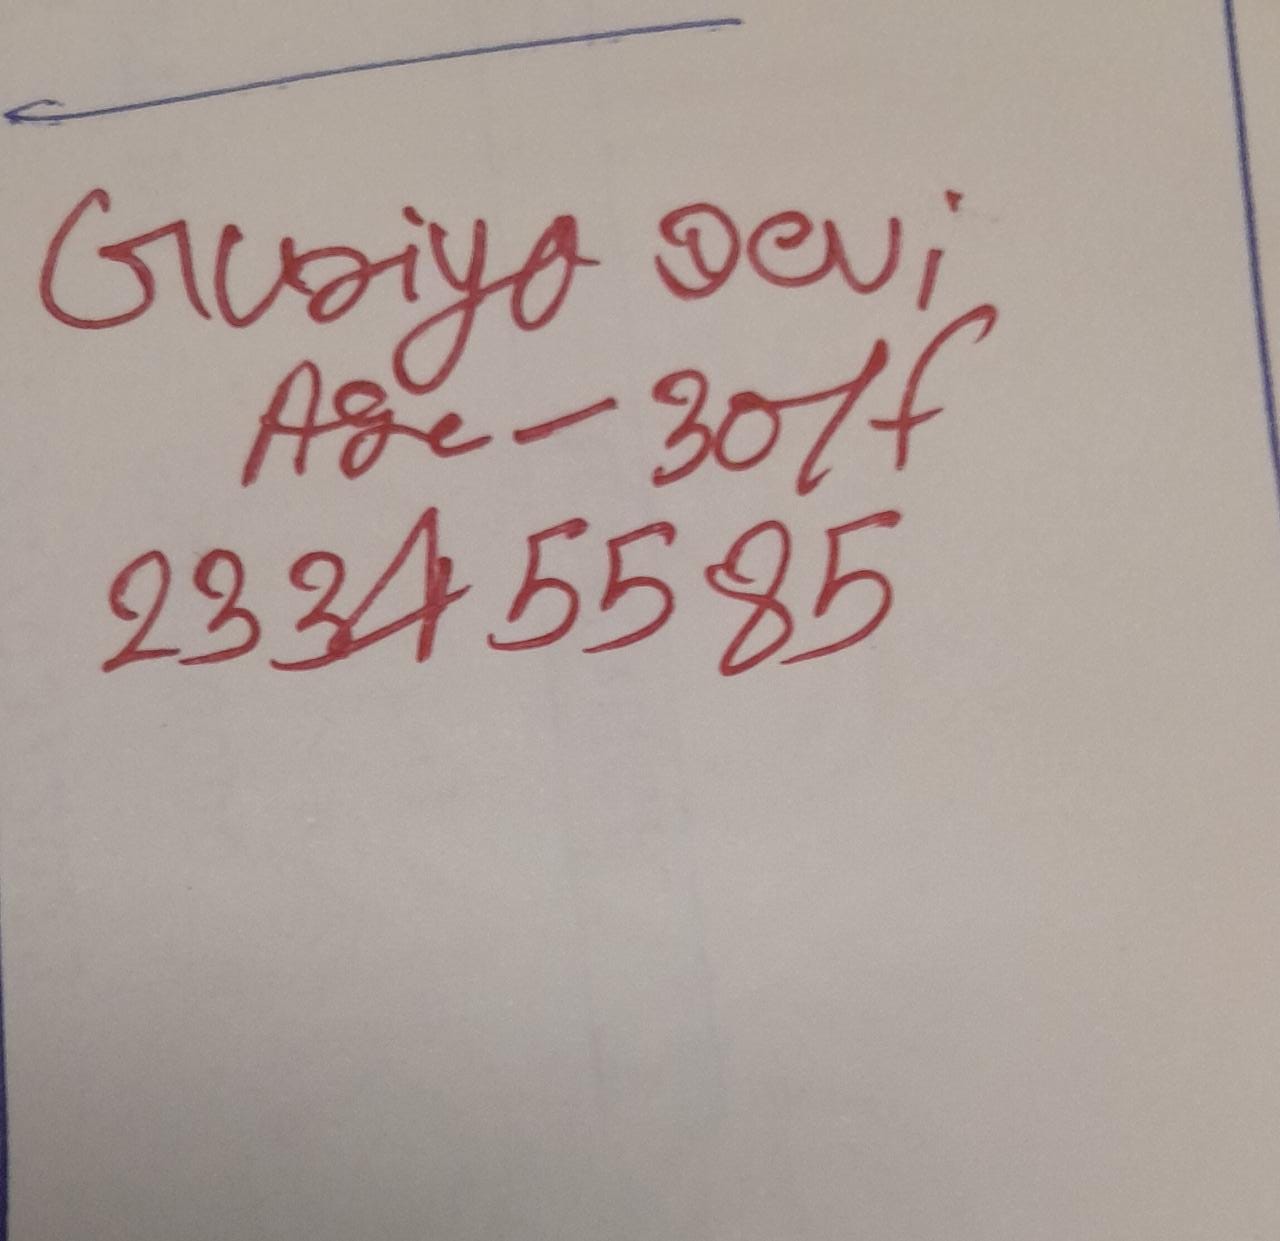 Gudiya Devi
Age - 30/f
23345585